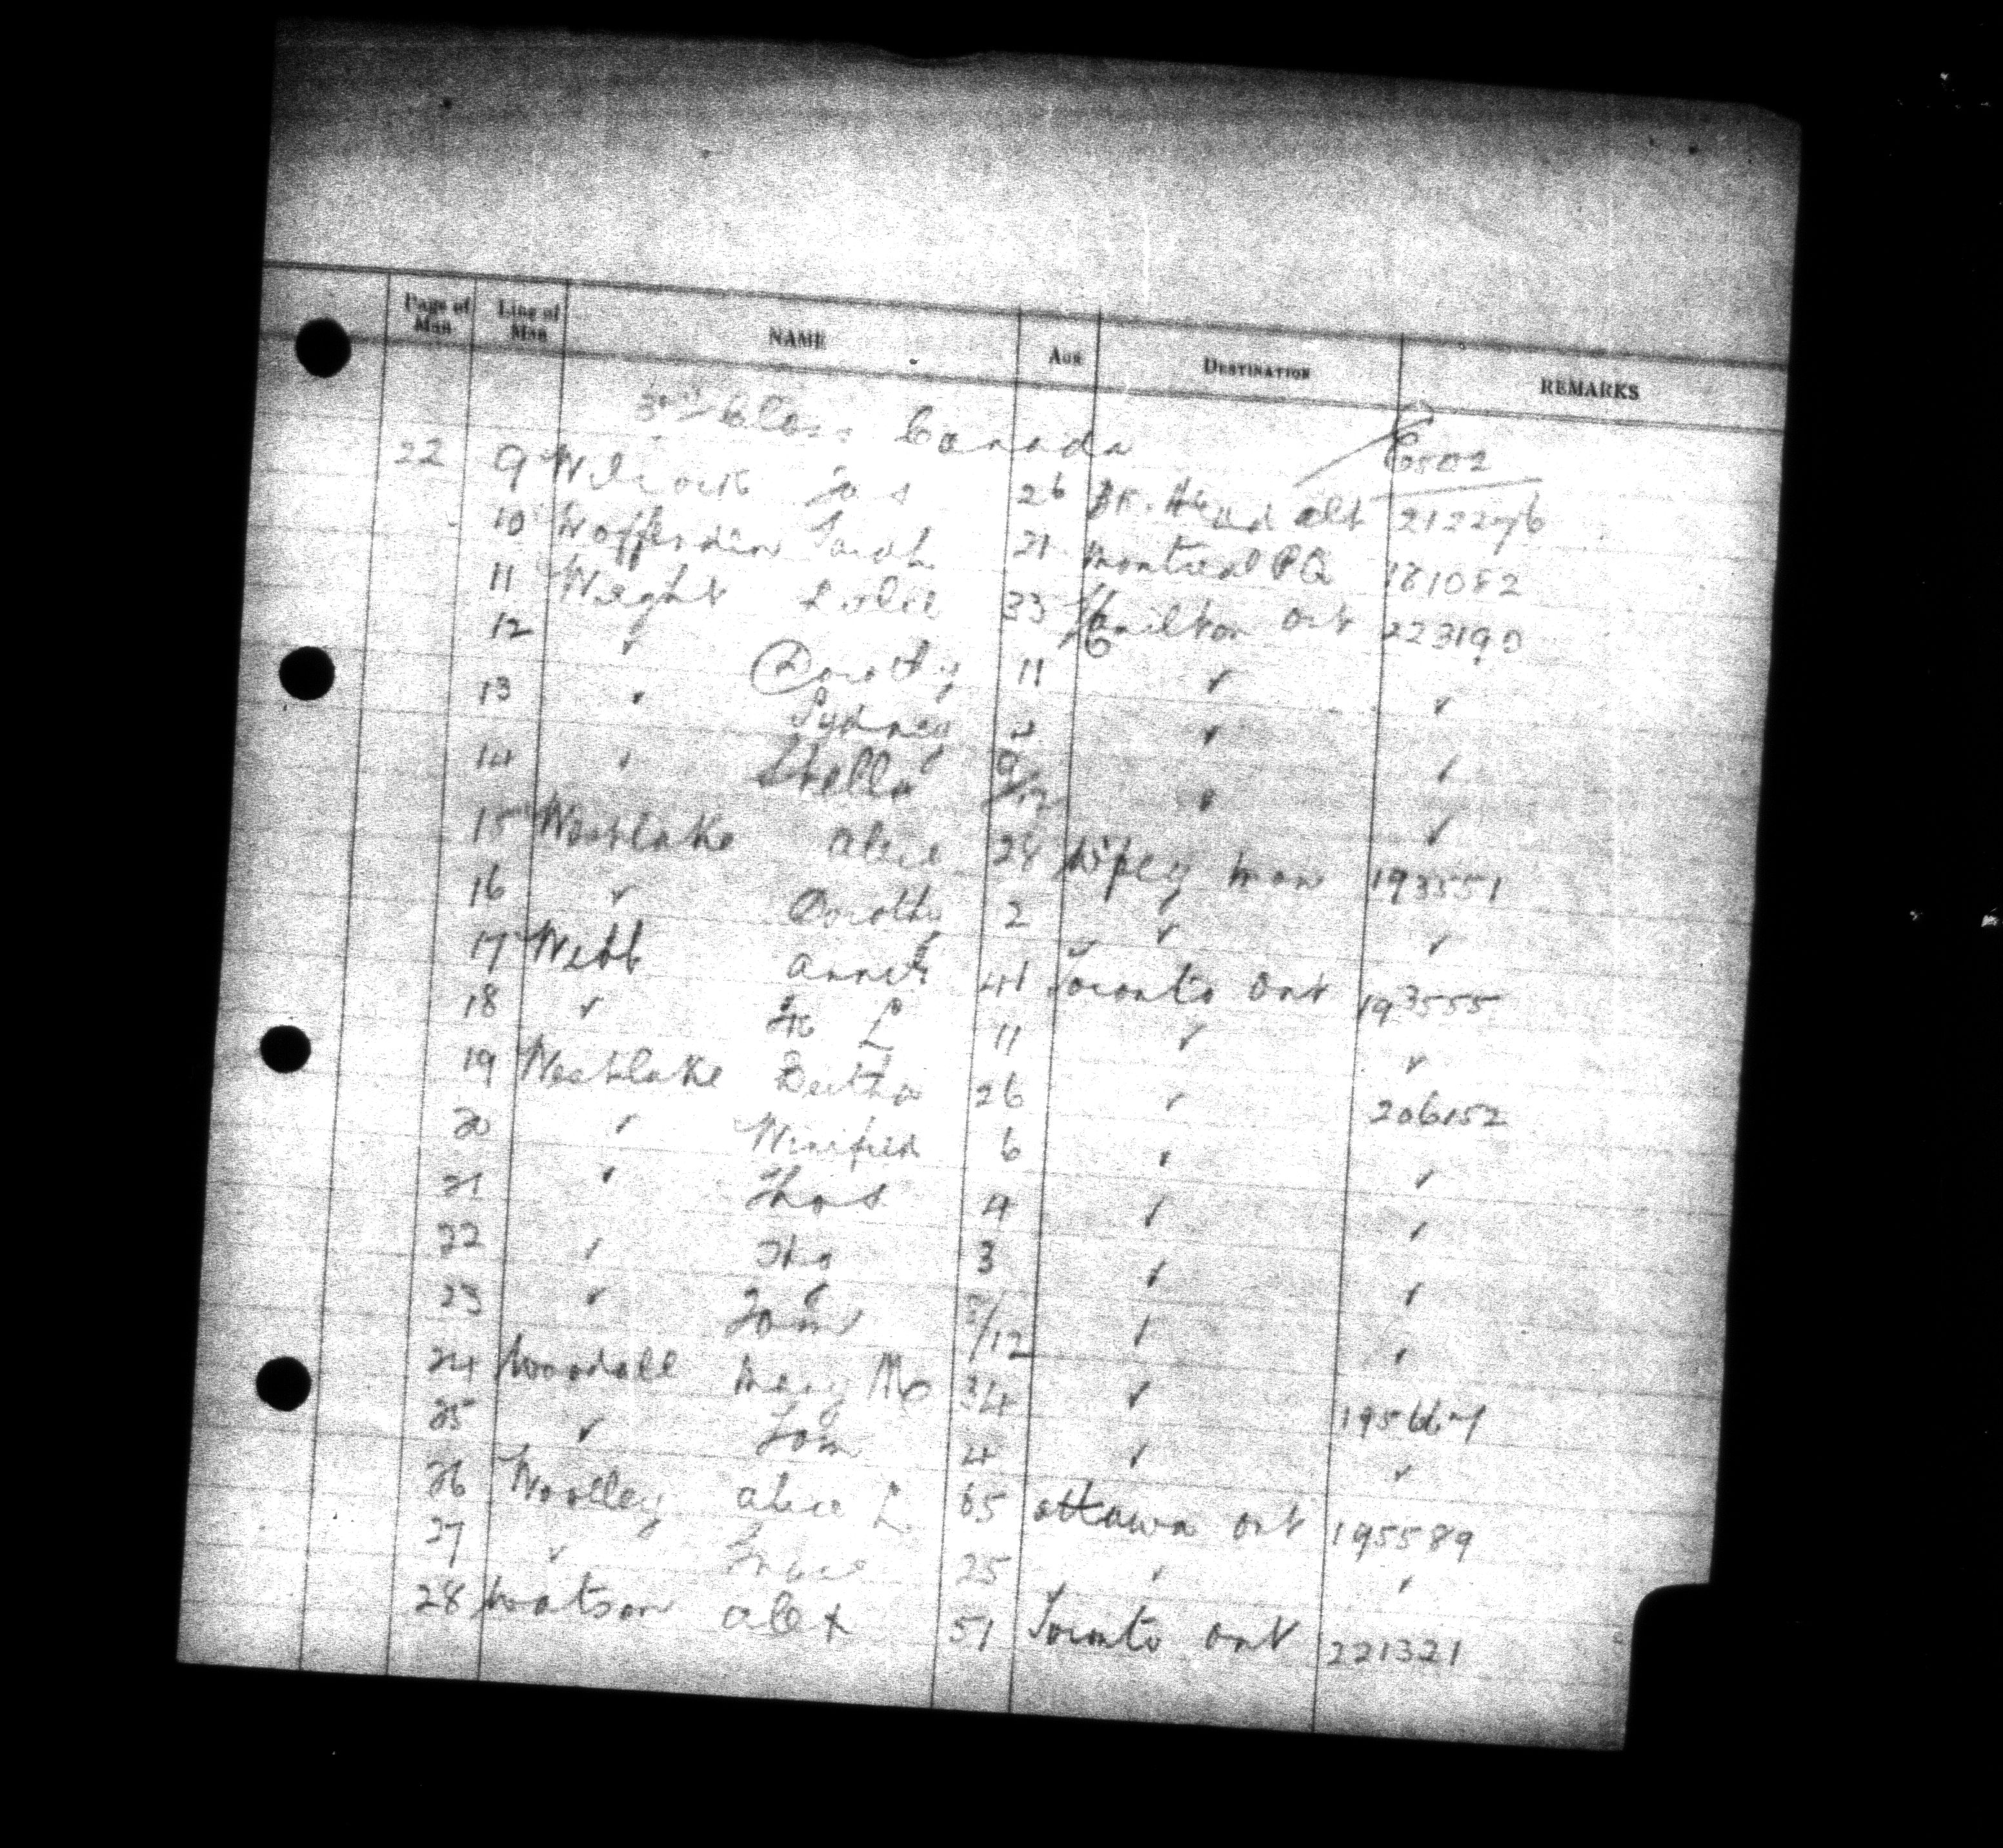 Page of Man Line of Man NAME AGE DESTINATION REMARKS
3rd Class Canada 6502
22 9 Wilcock Jas 26 Bk. Head alt 212276
10 Woffenden Sarah 21 Montreal PQ 181082
11 Wright Lolie 33 Hamilton Ont 223190
12 " Dorothy 11 " "
13 " Sydney 2 " "
14 " Stella 9/12 " "
15 Westlake Alice 28 Man 193551
16 " Dorothy 2 " "
17 Webb Annie 41 Toronto Ont 193555
18 " L 11 " "
19 Westlake Bertha 26 " 206152
20 " Winifred 6 " "
21 " Thos 4 " "
22 " 3 " "
23 " /12 " "
24 Woodall Mary M 34 "
25 " 4 " "
26 Woolley Alice L 65 Ottawa Ont 195589
27 " Grace 25 " "
28 Watson Alex 51 Toronto Ont 221321